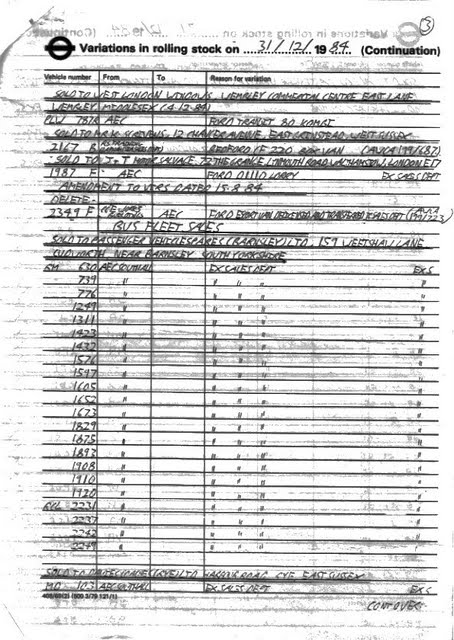 3
Variations in rolling stock on 31/12/1984 (Continuation)
Vehicle number From To Reason for variation
SOLD TO WEST LONDON WINDOWS, WEMBLEY COMMERCIAL CENTRE EAST LANE
WEMBLEY MIDDLESEX (4-12-84)
787B AEC FORD TRANSIT 30 KOMBI
SOLD TO MR K. STEVENS, 12 AVENUE, EAST GRINSTEAD, WEST SUSSEX
2167 B BEDFORD CF 220 BOX VAN
SOLD TO J & T MOTOR SALVAGE, 72 THE GRANGE, LYNMOUTH ROAD, WALTHAMSTOW, LONDON E17
1987 F AEC FORD D1110 LORRY EX SALES DEPT
AMENDMENT TO VIRS DATED 15-8-84
DELETE-
2349 F AEC FORD
BUS FLEET SALES
SOLD TO PASSENGER VEHICLE SPARES (BARNSLEY) LTD. 159 WEETSHAW LANE
CUDWORTH NEAR BARNSLEY SOUTH YORKSHIRE
RM 630 AEC SOUTHALL EX SALES DEPT EX S
739 " " " " "
776 " " " " "
1249 " " " " "
1311 " " " " "
1423 " " " " "
1432 " " " " "
1576 " " " " "
1597 " " " " "
1605 " " " " "
1652 " " " " "
1673 " " " " "
1829 " " " " "
1875 " " " " "
1893 " " " " "
1908 " " " " "
1910 " " " " "
1920 " " " " "
RCL 2231 " " " " "
2237 " " " " "
2242 " " " " "
2249 " " " " "
SOLD TO (RYE) LTD HARBOUR ROAD RYE EAST SUSSEX
MD 103 AEC SOUTHALL EX SALES DEPT EX S
CONT OVER